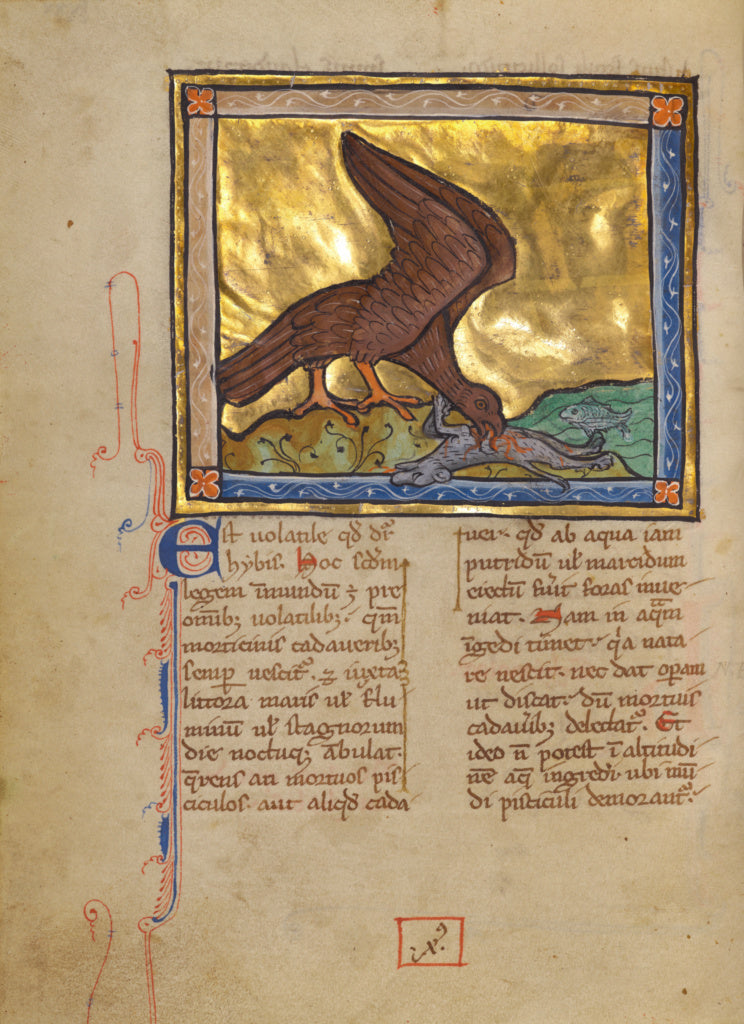 Est uolatile qd̄ dr̄
hybis. Hoc scd̄m
legem īmundū ⁊ pre
om̄ib; uolatilib; qm̄
morticinis cadauerib;
semp uescit᷑. ⁊ iuxta
littora maris ul̓ flu
minū ul̓ stagnorum
die noctuq; ābulat.
q̄rens an mortuos pis
ciculos. aut aliqd̓ cada
uer. qd̓ ab aqua iam
putridū ul̓ marcidum
eiectū fuīt foras inue
niat. Nam in aq̄m
īgredi timet. q̓a nata
re nescit. nec dat operam
ut discat. dū mortuis
cadauīb; delectat᷑. Et
ideo n̄ potest ī altitudi
nē aq̄ ingredi ubi mū
di pisciculi demorant᷑.
ix.